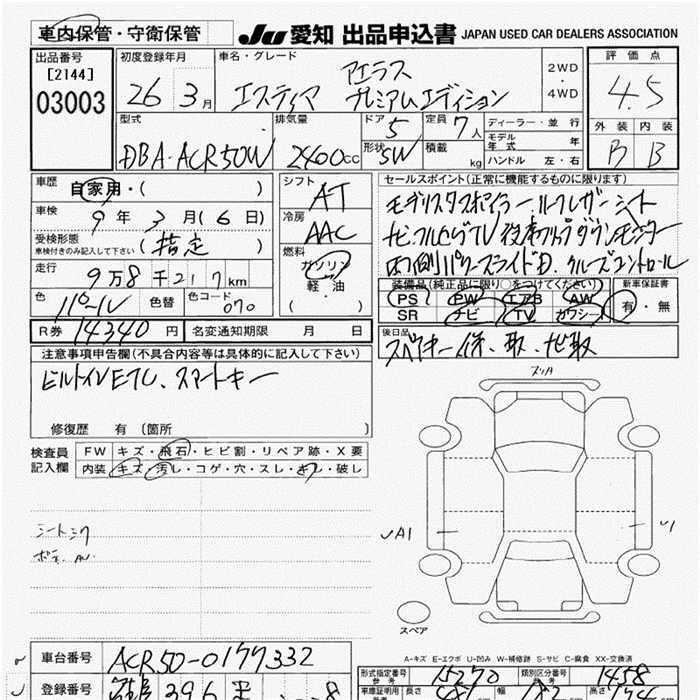 車内保管・守衛保管
JU 愛知 出品申込書 JAPAN USED CAR DEALERS ASSOCIATION
出品番号
[2144]
03003
初度登録年月
26 3月
車名・グレード
アエラス
エスティマ プレミアムエディション
2WD
・
4WD
評価点
4.5
外装 内装
B B
型式
DBA・ACR50W
排気量
2400cc
ドア 5
形状 SW
定員 7人
積載 kg
ディーラー・並行
モデル年式 年
ハンドル 左・右
車歴 自家用・( )
車検 9年3月(6日)
受検形態
車検付きのみ記入して下さい (指定)
走行 9万8千217km
色 パール 色替 色コード 070
R券 14340円 名変通知期限 月 日
シフト AT
冷房 AAC
燃料
ガソリン
軽・油
( )
セールスポイント(正常に機能するものに限ります)
モデリスタスポイラー ハーフレザーシート
ナビ、フルセグTV 後席フリップダウンモニター
両側パワースライドD、クルーズコントロール
装備品(純正品に限り○をつけてください)
PS PW エアB AW
SR ナビ TV カワシート
新車保証書
有・無
後日品
スペアキー、保、取、ナビ取
注意事項申告欄(不具合内容等は具体的に記入して下さい)
ビルトインETC、スマートキー
修復歴 有(箇所 )
検査員記入欄
FW キズ・飛石・ヒビ割・リペア跡・X要
内装 キズ・汚レ・コゲ・穴・スレ・キレ・破レ
シートシワ
A1
U1
スペア
A-キズ E-エクボ U-凹み W-補修跡 S-サビ C-腐食 XX-交換済
車台番号 ACR50-0177332
登録番号 396
型式指定番号 15270
類別区分番号 1458
長さ 幅 高さ